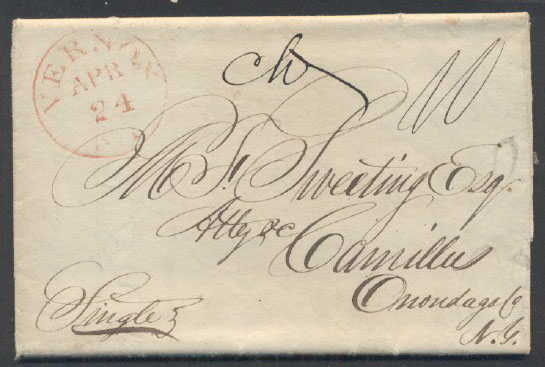 VERNON
APR
24
N Y
ch
10
M. S. Sweeting Esq.
Atty &c
Camillus
Onondaga Co
N.Y.
Single